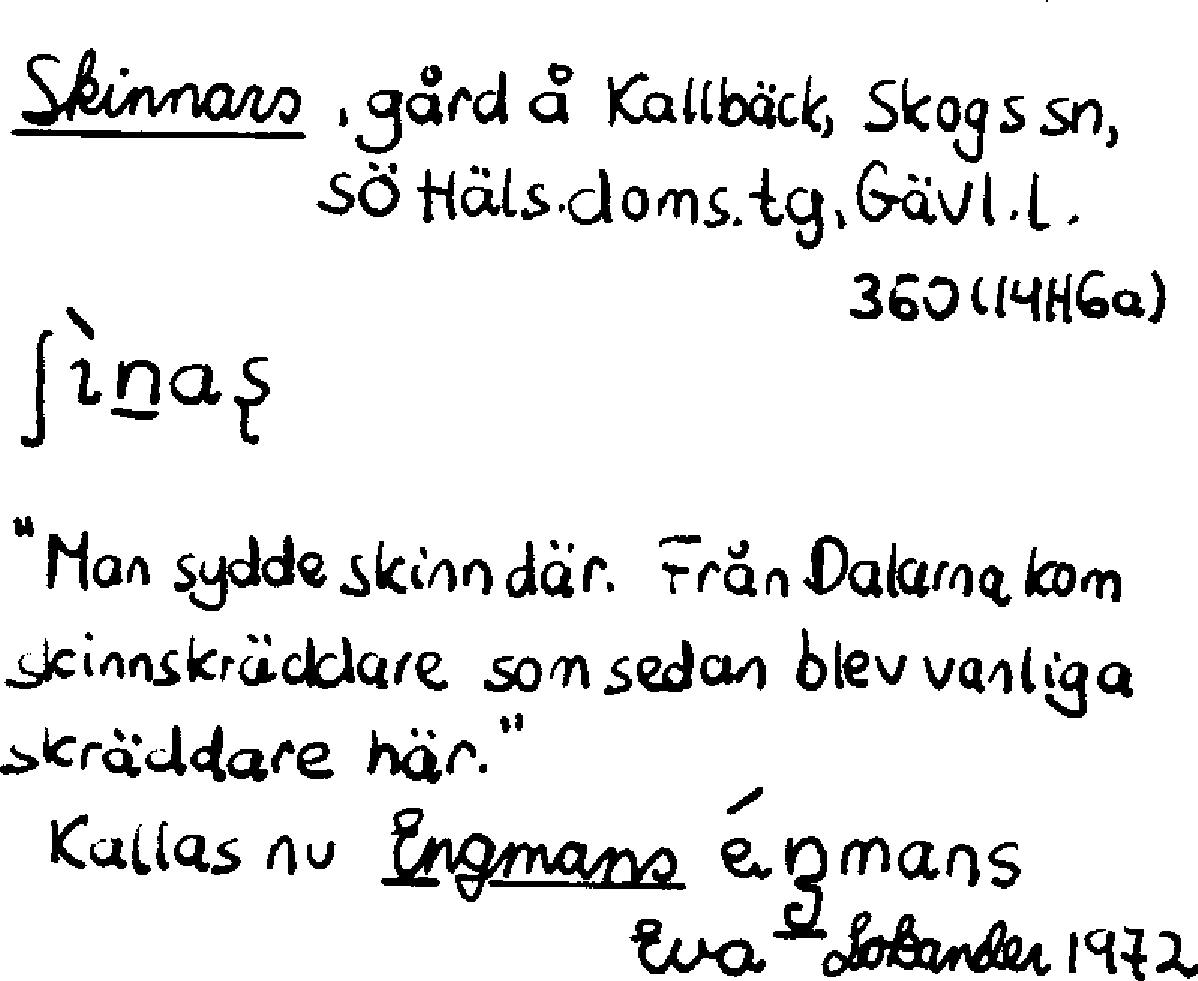 Skinnars, gård å Kallbäck, Skogs sn,
sö Häls. doms. tg, Gävl. l.
360 (14H6a)
ʃìn̲aş
"Man sydde skinn där. Från Dalarna kom
skinnskräddare som sedan blev vanliga
skräddare här."
Kallas nu Engmans éŋ̲mans
Eva 1972